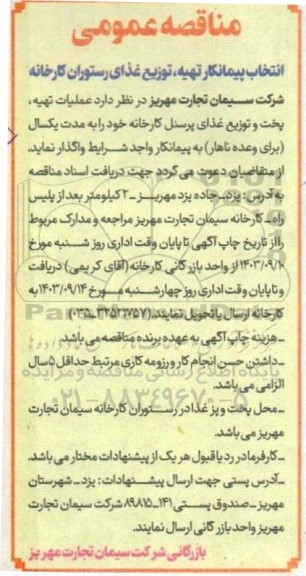 مناقصه عمومی
انتخاب پیمانکار تهیه، توزیع غذای رستوران کارخانه
شرکت سیمان تجارت مهریز در نظر دارد عملیات تهیه،
پخت و توزیع غذای پرسنل کارخانه خود را به مدت یکسال
(برای وعده ناهار) به پیمانکار واجد شرایط واگذار نماید.
از متقاضیان دعوت می گردد جهت دریافت اسناد مناقصه
به آدرس: یزد_جاده یزد مهریز_ ۲۰ کیلومتر بعد از پلیس
راه_ کارخانه سیمان تجارت مهریز مراجعه و مدارک مربوط
را از تاریخ چاپ آگهی تا پایان وقت اداری روز شنبه مورخ
۱۴۰۳/۰۹/۱۰ از واحد بازرگانی کارخانه (آقای کریمی) دریافت
و تا پایان وقت اداری روز چهارشنبه مورخ ۱۴۰۳/۰۹/۱۴ به
کارخانه ارسال یا تحویل نمایند. (۳۲۵۲۱۷۵۷_۰۳۵)
_هزینه چاپ آگهی به عهده برنده مناقصه می باشد.
_داشتن حسن انجام کار و رزومه کاری مرتبط حداقل ۵ سال
الزامی می باشد.
_محل پخت و پز غذا در رستوران کارخانه سیمان تجارت
مهریز می باشد.
_کارفرما در رد یا قبول هر یک از پیشنهادات مختار می باشد.
_آدرس پستی جهت ارسال پیشنهادات: یزد_ شهرستان
مهریز_صندوق پستی ۱۴۱_۸۹۸۱۵ شرکت سیمان تجارت
مهریز واحد بازرگانی ارسال نمایند.
بازرگانی شرکت سیمان تجارت مهریز
پایگاه اطلاع رسانی مناقصه و مزایده
۰۲۱-۸۸۳۴۹۶۷۰-۵